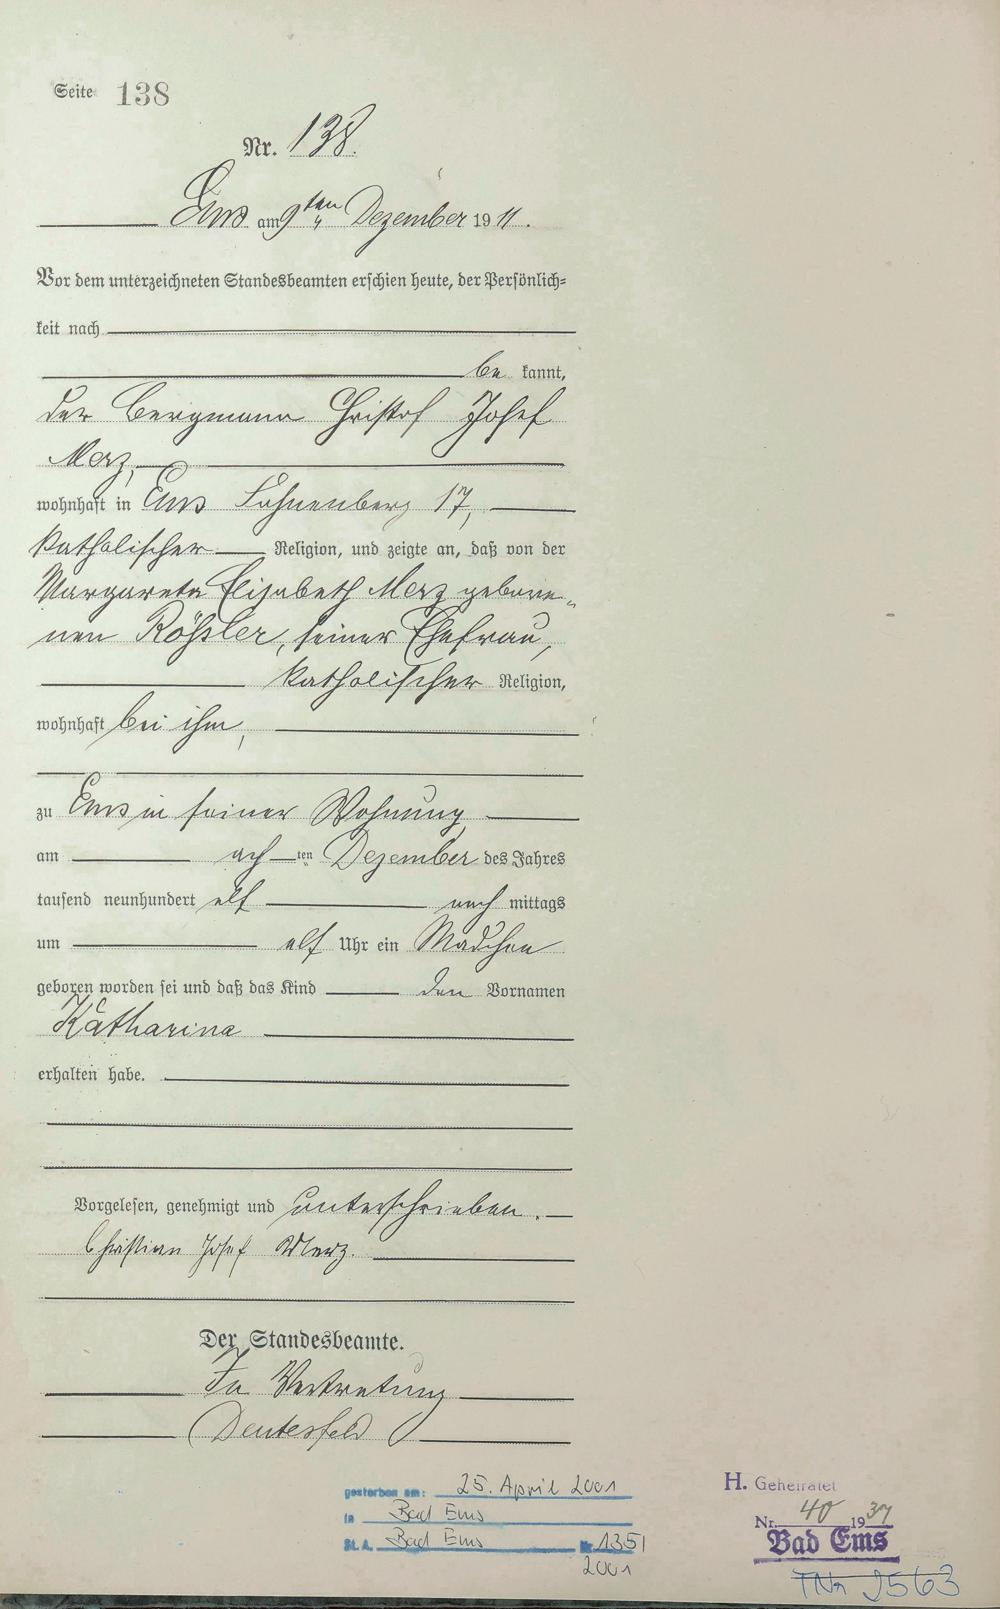 Seite 138
Nr. 138.
Ems am 9ten Dezember 1911.
Vor dem unterzeichneten Standesbeamten erschien heute, der Persönlich=
keit nach
be kannt,
der Bergmann Christof Josef
Merz,
wohnhaft in Ems Lahnenberg 17,
katholischer Religion, und zeigte an, daß von der
Margareta Elisabeth Merz gebore-
nen Rößler, seiner Ehefrau,
katholischer Religion,
wohnhaft bei ihm,
zu Ems in seiner Wohnung
am ach ten Dezember des Jahres
tausend neunhundert elf nach mittags
um elf Uhr ein Mädchen
geboren worden sei und daß das Kind den Vornamen
Katharina
erhalten habe.
Vorgelesen, genehmigt und unterschrieben.
Christian Josef Merz.
Der Standesbeamte.
In Vertretung
Deutesfeld
gestorben am: 25. April 2001
in Bad Ems
St. A. Bad Ems Nr. 135/
2001
H. Geheiratet
Nr. 40 1937
Bad Ems